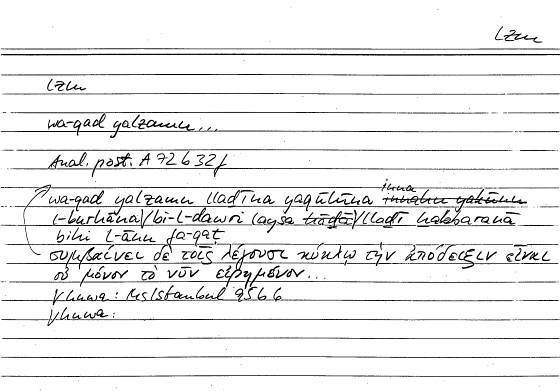 Lzm
Lzm
wa-qad yalzamu...
Anal. post. A 72 b 32 f
inna
wa-qad yalzamu lladīna yaqūlūna innahu yakūnu
l-burhāna/bi-l-dawri laysa hādā/lladī habbaranā
bihi l-āna fa-qaṭ
συμβαίνει δὲ τοῖς λέγουσι κύκλῳ τὴν ἀπόδειξιν εἶναι
οὐ μόνον τὸ νῦν εἰρημένον...
yhuwa: Ms Istanbul 9566
yhuwa: